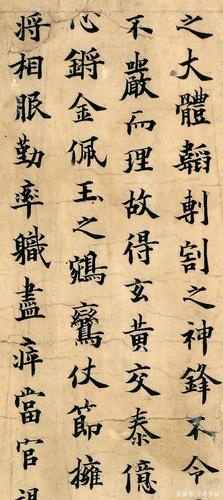 之大體韜剸割之神鋒不令
不嚴而理故得玄黃交泰億
心鏘金佩玉之鵷鸞仗節擁
將相服勤率職盡瘁當官